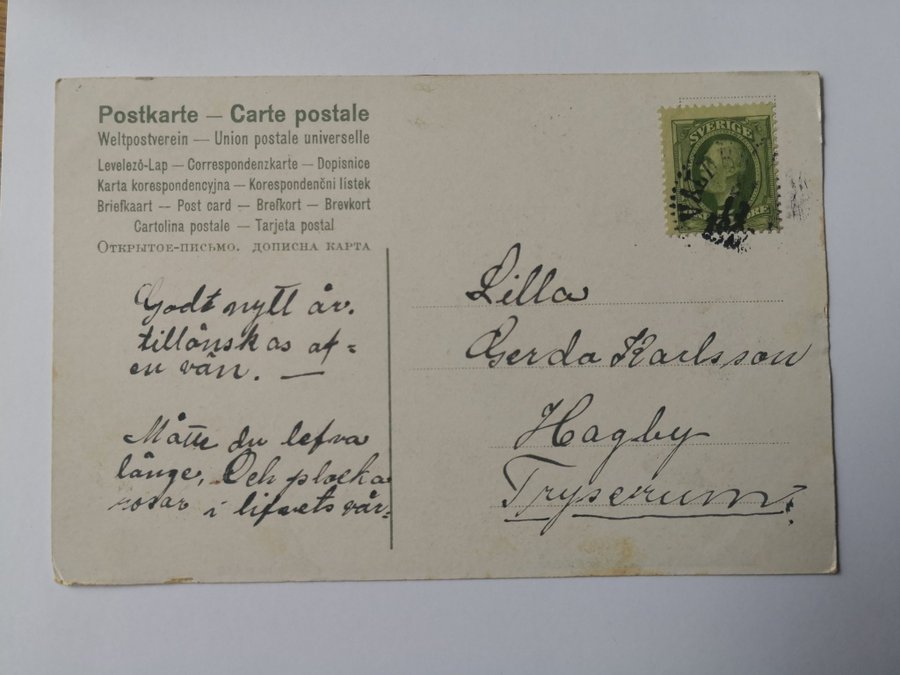 Postkarte — Carte postale
Weltpostverein — Union postale universelle
Levelező-Lap — Correspondenzkarte — Dopisnice
Karta korespondencyjna — Korespondenční lístek
Briefkaart — Post card — Brefkort — Brevkort
Cartolina postale — Tarjeta postal
Открытое-письмо. дописна карта
SVERIGE
Godt nytt år.
tillönskas af =
en vän. —
Måtte du lefva
länge, Och plocka
rosor i lifvets vår.
Lilla
Gerda Karlsson
Hagby
Tryserum.